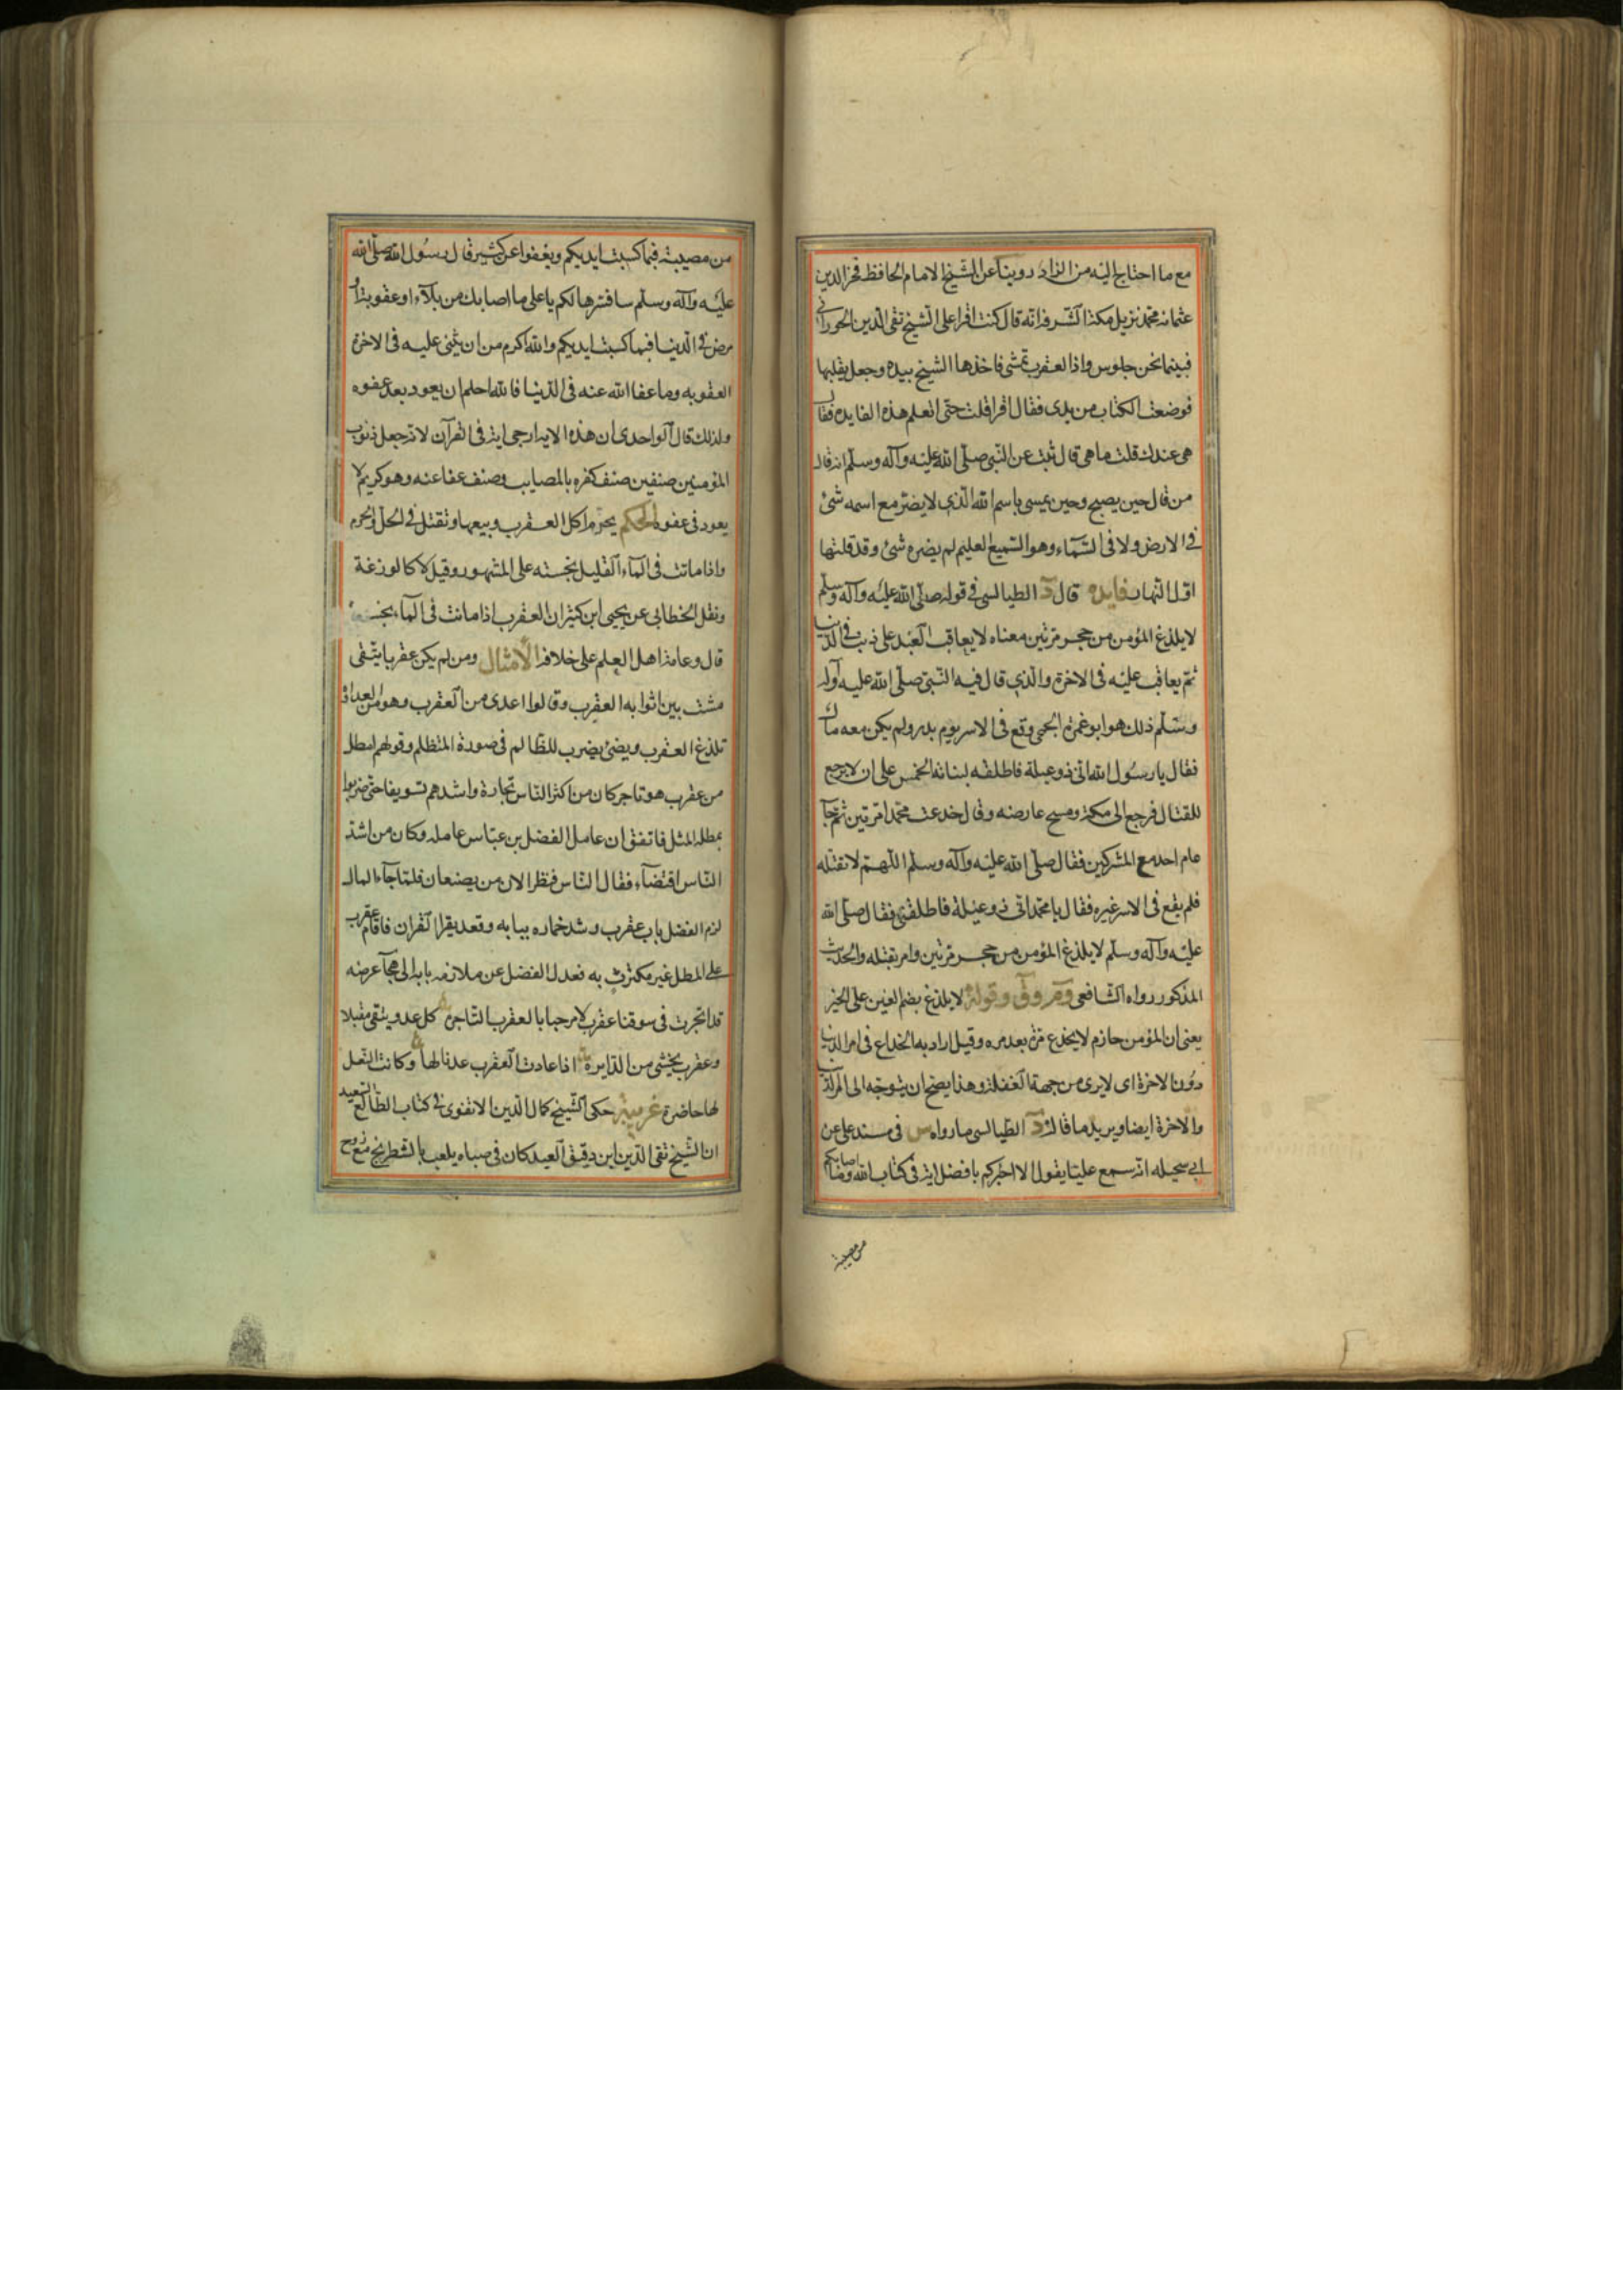 مع ما احتاج اليه من الزاد روينا عن الشيخ الامام الحافظ فخر الدين
عثمان محمد نزيل مكة الشرفة انه قال كنت اقرا على الشيخ تقى الدين الحورانى
فبينما نحن جلوس واذا العقرب تمشى فاخذها الشيخ بيده وجعل يقلبها
فوضعت الكتاب من يدى فقال اقرا قلت حتى اتعلم هذه الفايده فقال
هى عندك قلت ما هى قال ثبت عن النبى صلى الله عليه وآله وسلم انه قال
من قال حين يصبح وحين يمسى باسم الله الذى لا يضر مع اسمه شئ
فى الارض ولا فى السمآء وهو السميع العليم لم يضره شئ وقد قلتها
اول النهار فايده قال د الطيالسى فى قوله صلى الله عليه وآله وسلم
لا يلدغ المؤمن من حجر مرتين معناه لا يعاقب العبد على ذنب فى الدنيا
ثم يعاقب عليه فى الاخرة والذى قال فيه النبى صلى الله عليه وآله
وسلم ذلك هو ابو غمرة الجمحى وقع فى الاسر يوم بدر ولم يكن معه مال
فقال يا رسول الله انى ذو عيلة فاطلقه لبناته الخمس على ان لا يرجع
للقتال فرجع الى مكة ومسح عارضه وقال خدعت محمدا مرتين ثم جآ
عام احد مع المشركين فقال صلى الله عليه وآله وسلم اللهم لا تفلته
فلم يقع فى الاسر غيره فقال يا محمد انى ذو عيلة فاطلقنى فقال صلى الله
عليه وآله وسلم لا يلدغ المؤمن من حجر مرتين وامر بقتله والحديث
المذكور رواه الشافعى وم وق وقوله لا يلدغ بضم الغين على الخبر
يعنى ان المؤمن حازم لا يخدع مرة بعد مره وقيل اراد به الخداع فى امر الدنيا
دون الاخرة اى لا يرى من جهة الغفلة وهذا يصح ان يتوجه الى امر الدنيا
والاخرة ايضا ويريد ما قاله د الطيالسى ما رواه س فى مسند على عن
ابى سحيله انه سمع عليا يقول الا اخبركم بافضل اية فى كتاب الله وما اصابكم
من مصيبة
من مصيبة فبما كسبت ايديكم ويعفوا عن كثير قال رسول الله صلى الله
عليه وآله وسلم سافسرها لكم يا على ما اصابك من بلآء او عقوبة او
مرض فى الدنيا فبما كسبت ايديكم والله اكرم من ان يثنى عليه فى الاخرة
العقوبه وما عفا الله عنه فى الدنيا فالله احلم ان يعود بعد عفوه
ولذلك قال الواحدى ان هذه الاية ارجى اية فى القرآن لانه جعل ذنوب
المؤمنين صنفين صنف كفره بالمصايب وصنف عفا عنه وهو كريم لا
يعود فى عفوه الحكم يحرم اكل العقرب وبيعها وتقتل فى الحل والحرم
واذا ماتت فى المآء القليل نجسته على المشهور وقيل لا كالوزغة
ونقل الخطابى عن يحيى ابن كثير ان العقرب اذا ماتت فى المآء نجسته
قال وعامة اهل العلم على خلافه الأمثال ومن لم يكن عقربا يتقى
مشت بين اثوابه العقرب وقالوا اعدى من العقرب وهو من العداوة
تلدغ العقرب ويضئ يضرب للظالم فى صورة المتظلم وقولهم امطل
من عقرب هو تاجر كان من اكثر الناس تجارة واشدهم تسويفا حتى ضربوا
بمطله المثل فاتفق ان عامل الفضل بن عباس عامله وكان من اشد
الناس اقتضآء فقال الناس ننظر الان من يصنعان فلما جآء المال
لزم الفضل باب عقرب وشد خماره ببابه وقعد يقرا القران فاقام عقرب
على المطل غير مكترث به فعدل الفضل عن ملازمة بابه الى هجآ عرضه
قد اتجرت فى سوقنا عقرب لا مرحبا بالعقرب التاجره كل عدو يتقى مقبلا
وعقرب يخشى من الدايرة اذا عادت العقرب عدنا لها وكانت النعل
لها حاضرة غريبة حكى الشيخ كمال الدين الادفوى فى كتاب الطالع السعيد
ان الشيخ تقى الدين ابن دقيق العيد كان فى صباه يلعب بالشطرنج مع زوج